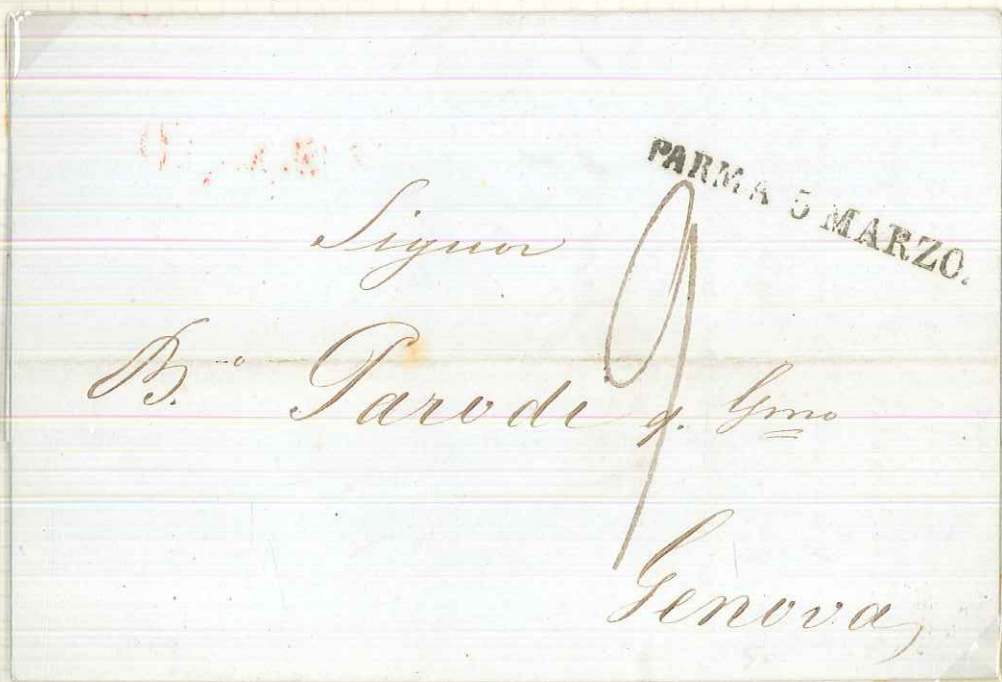 PARMA 5 MARZO.
Signor
B.º Parodi q. Gmo
9
Genova